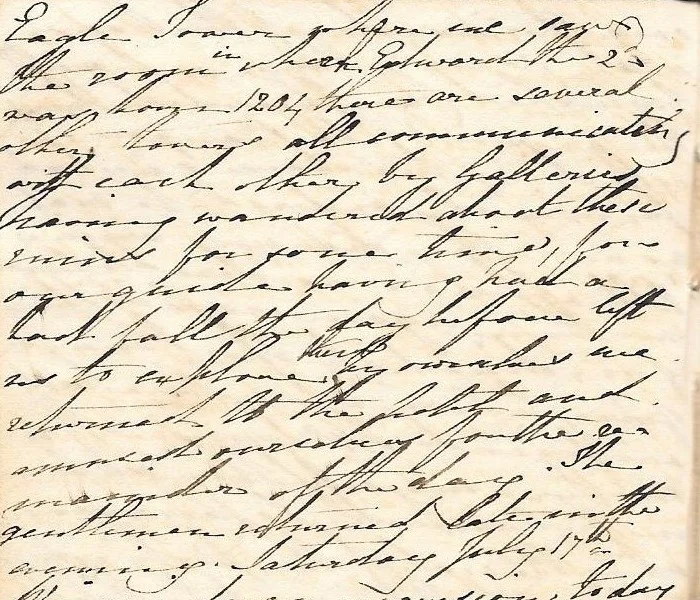 Eagle Tower where we saw
the room in where Edward the 2d
was born 1284 there are several
other towers all communicating
with each other by Galleries
having wandered about these
ruins for some time, for
our guide having had a
bad fall the day before left
us to explore them by ourselves we
returned to the hotel and
amused ourselves for the re=
mainder of the day. The
gentlemen returned late in the
evening. Saturday July 17th
today